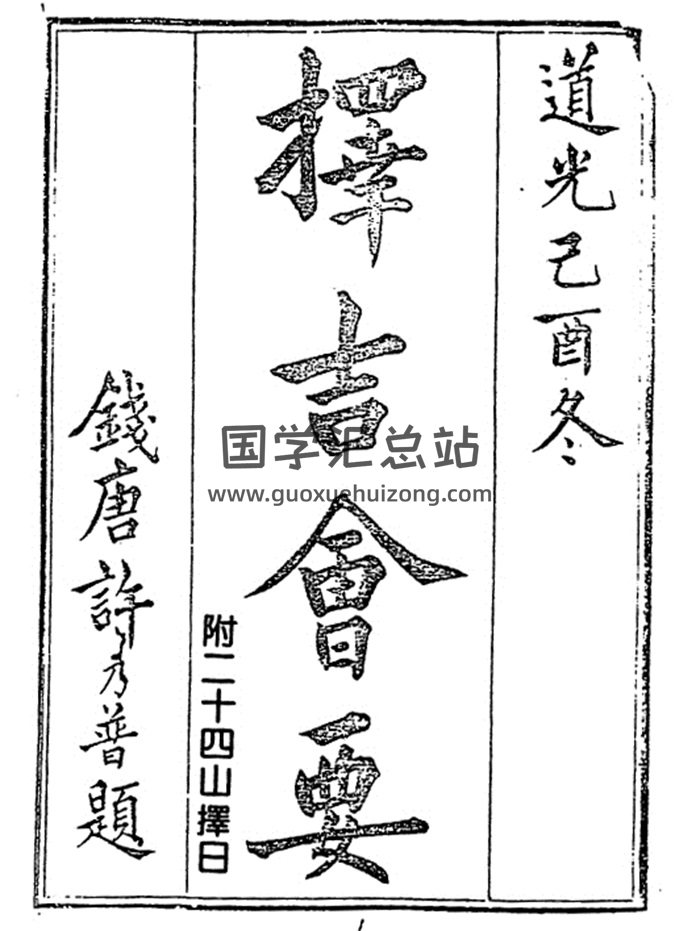 道光己酉冬
擇吉會要
附二十四山擇日
錢唐許乃普題
国学汇总站
www.guoxuehuizong.com